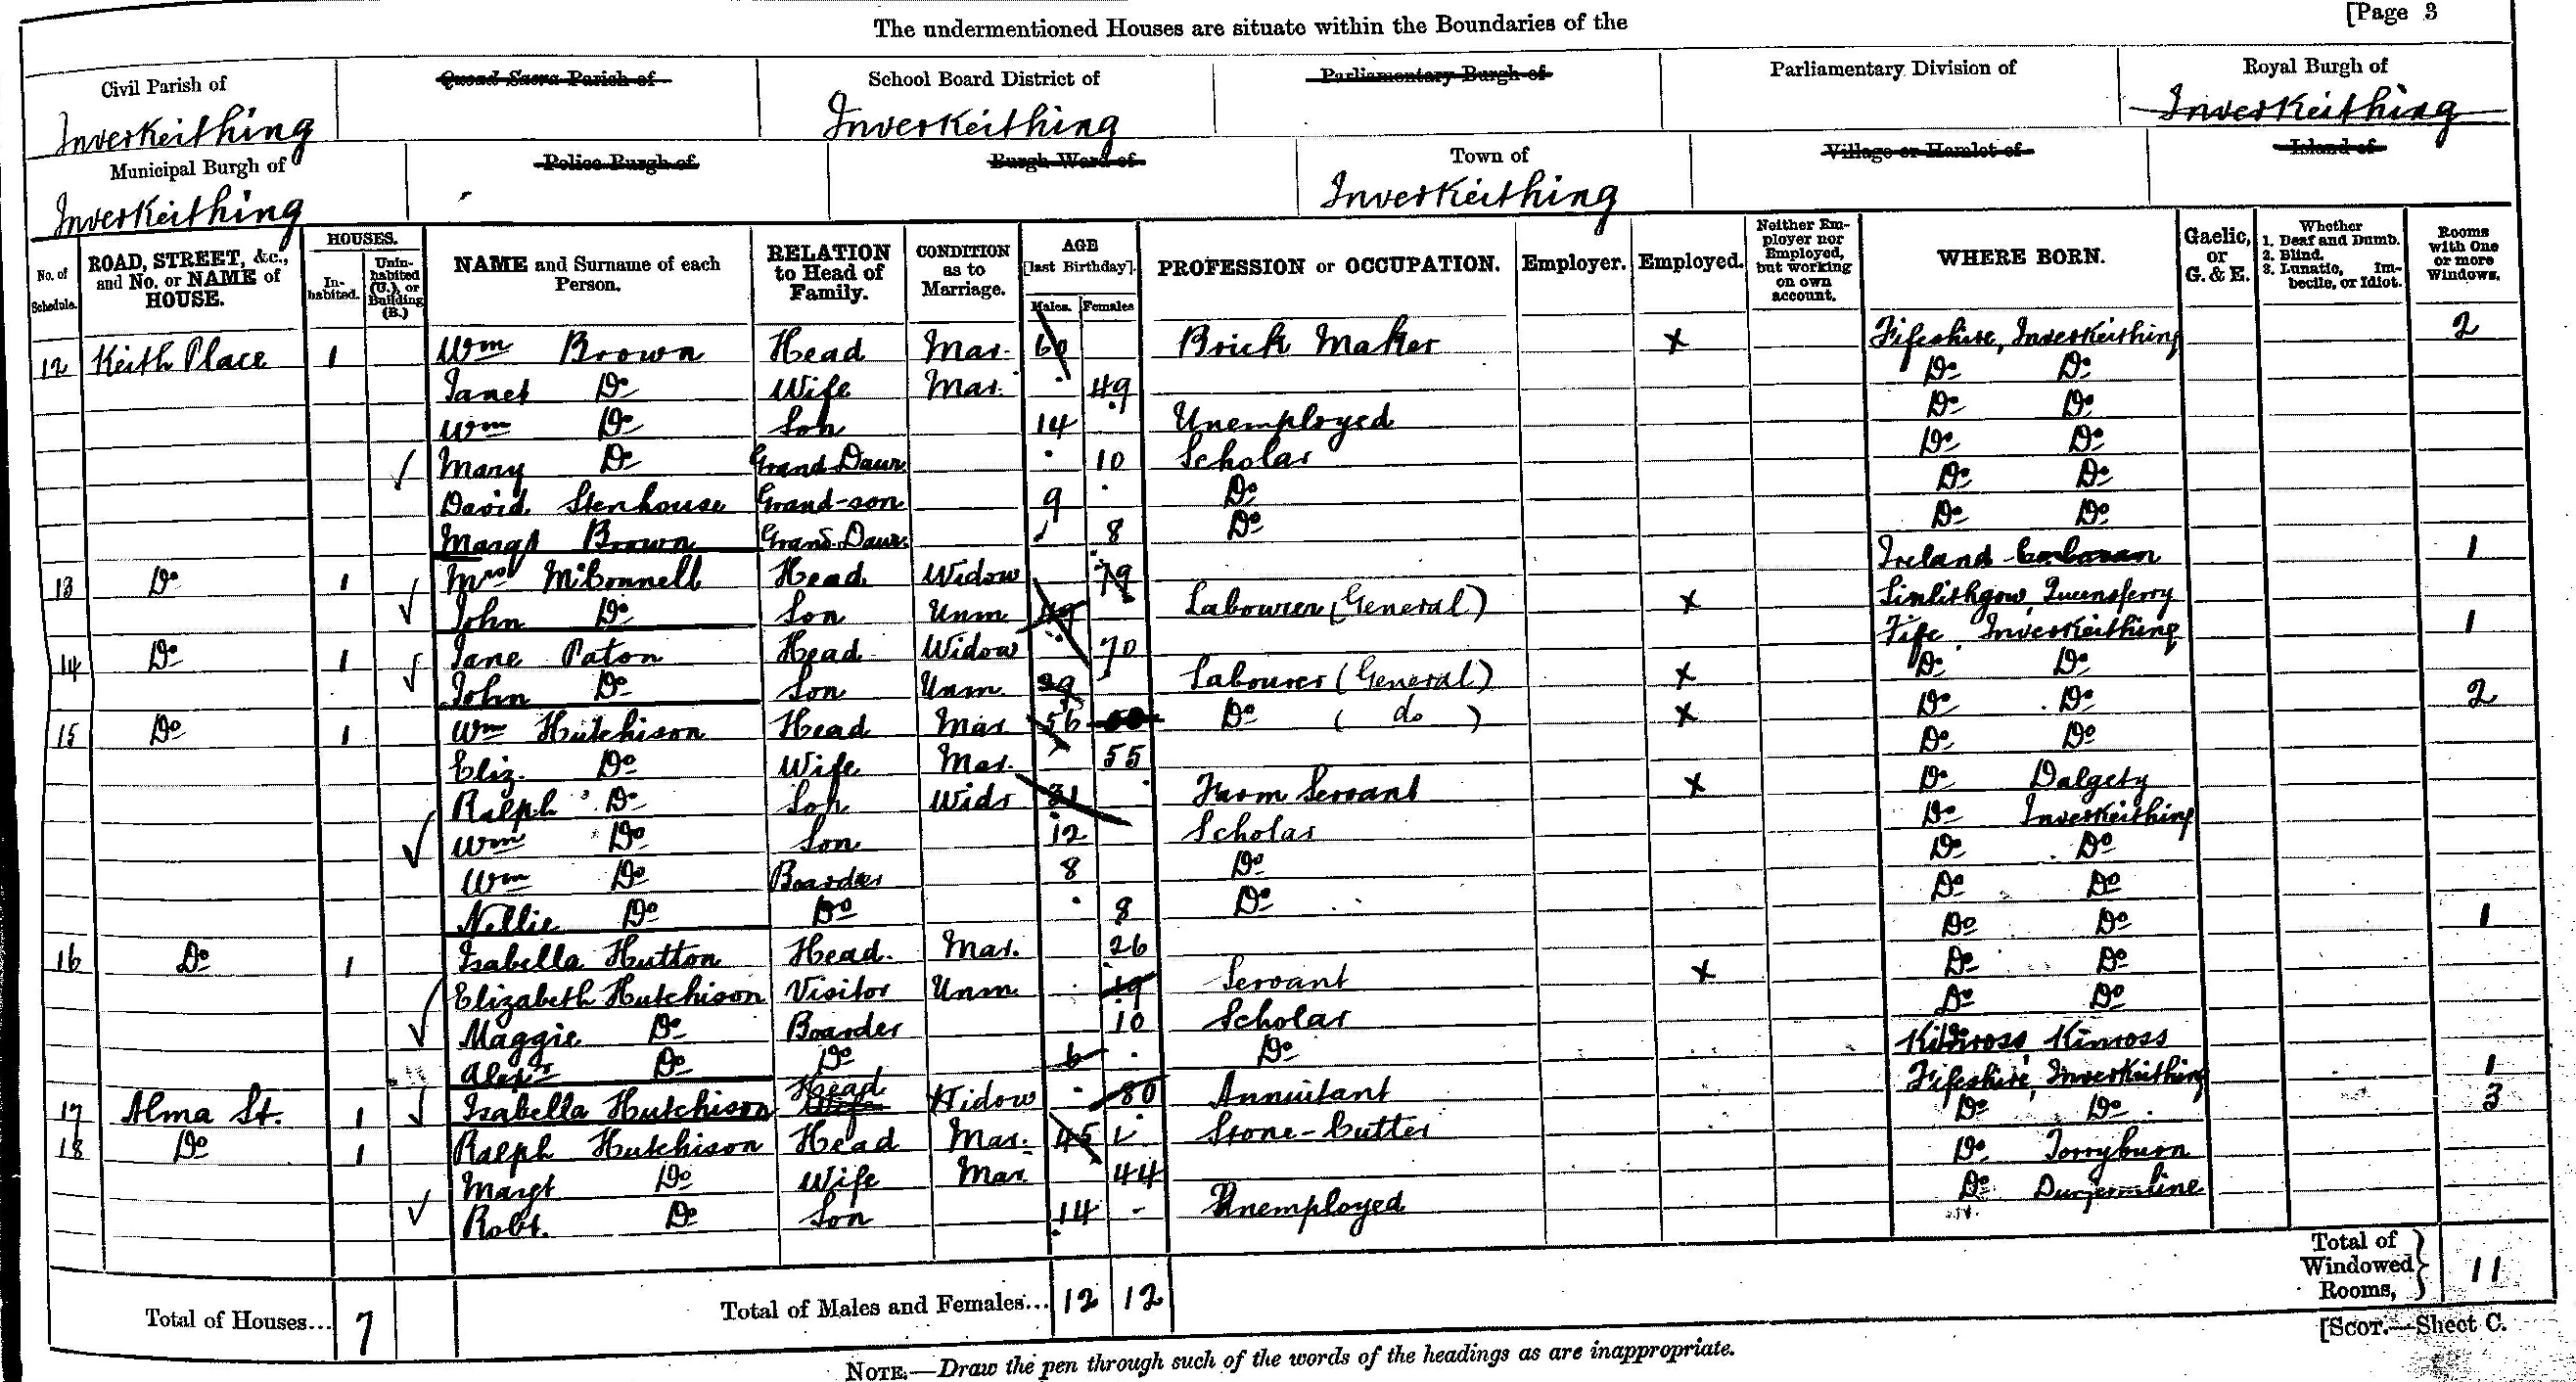 [Page 3
The undermentioned Houses are situate within the Boundaries of the
Civil Parish of Quoad Sacra Parish of School Board District of Parliamentary Burgh of Parliamentary Division of Royal Burgh of
Inverkeithing Inverkeithing Inverkeithing
Municipal Burgh of Police Burgh of Burgh Ward of Town of Village or Hamlet of Island of
Inverkeithing Inverkeithing
No. of Schedule. ROAD, STREET, &c., and No. or NAME of HOUSE. HOUSES. Inhabited. Uninhabited (U.), or Building (B.) NAME and Surname of each Person. RELATION to Head of Family. CONDITION as to Marriage. AGE [last Birthday]. Males. Females PROFESSION or OCCUPATION. Employer. Employed. Neither Employer nor Employed, but working on own account. WHERE BORN. Gaelic, or G. & E. Whether 1. Deaf and Dumb. 2. Blind. 3. Lunatic, Imbecile, or Idiot. Rooms with One or more Windows.
12 Keith Place 1 Wm Brown Head Mar. 60 Brick Maker x Fifeshire, Inverkeithing 2
Janet Do Wife Mar. 49 Do Do
Wm Do Son 14 Unemployed Do Do
Mary Do Grand Daur 10 Scholar Do Do
David Stenhouse Grand-son 9 Do Do Do
Margt Brown Grand-Daur. 8 Do Do Do
13 Do 1 Mrs McConnell Head Widow 79 Ireland 1
John Do Son Unm. 49 Labourer (General) x Linlithgow, Queensferry
14 Do 1 Jane Paton Head Widow 70 Fife Inverkeithing 1
John Do Son Unm. 39 Labourer (General) x Do Do
15 Do 1 Wm Hutchison Head Mar. 56 Do ( do ) x Do Do 2
Eliz. Do Wife Mar. 55 Do Do
Ralph Do Son Widr 31 Farm Servant x Do Dalgety
Wm Do Son 12 Scholar Do Inverkeithing
Wm Do Boarder 8 Do Do Do
Nellie Do Do 8 Do Do Do
16 Do 1 Isabella Hutton Head. Mar. 26 Do Do 1
Elizabeth Hutchison Visitor Unm. 19 Servant x Do Do
Maggie Do Boarder 10 Scholar Do Do
Alexr Do Do 6 Do Kinross Kinross
17 Alma St. 1 Isabella Hutchison Head Wife Widow 80 Annuitant Fifeshire, Inverkeithing 1
18 Do 1 Ralph Hutchison Head Mar. 45 Stone-Cutter Do Do. 3
Margt Do Wife Mar. 44 Do Torryburn
Robt. Do Son 14 - Unemployed Do Dunfermline
Total of Houses... 7 Total of Males and Females... 12 12 Total of Windowed Rooms, 11
[SCOT.—Sheet C.
NOTE.—Draw the pen through such of the words of the headings as are inappropriate.